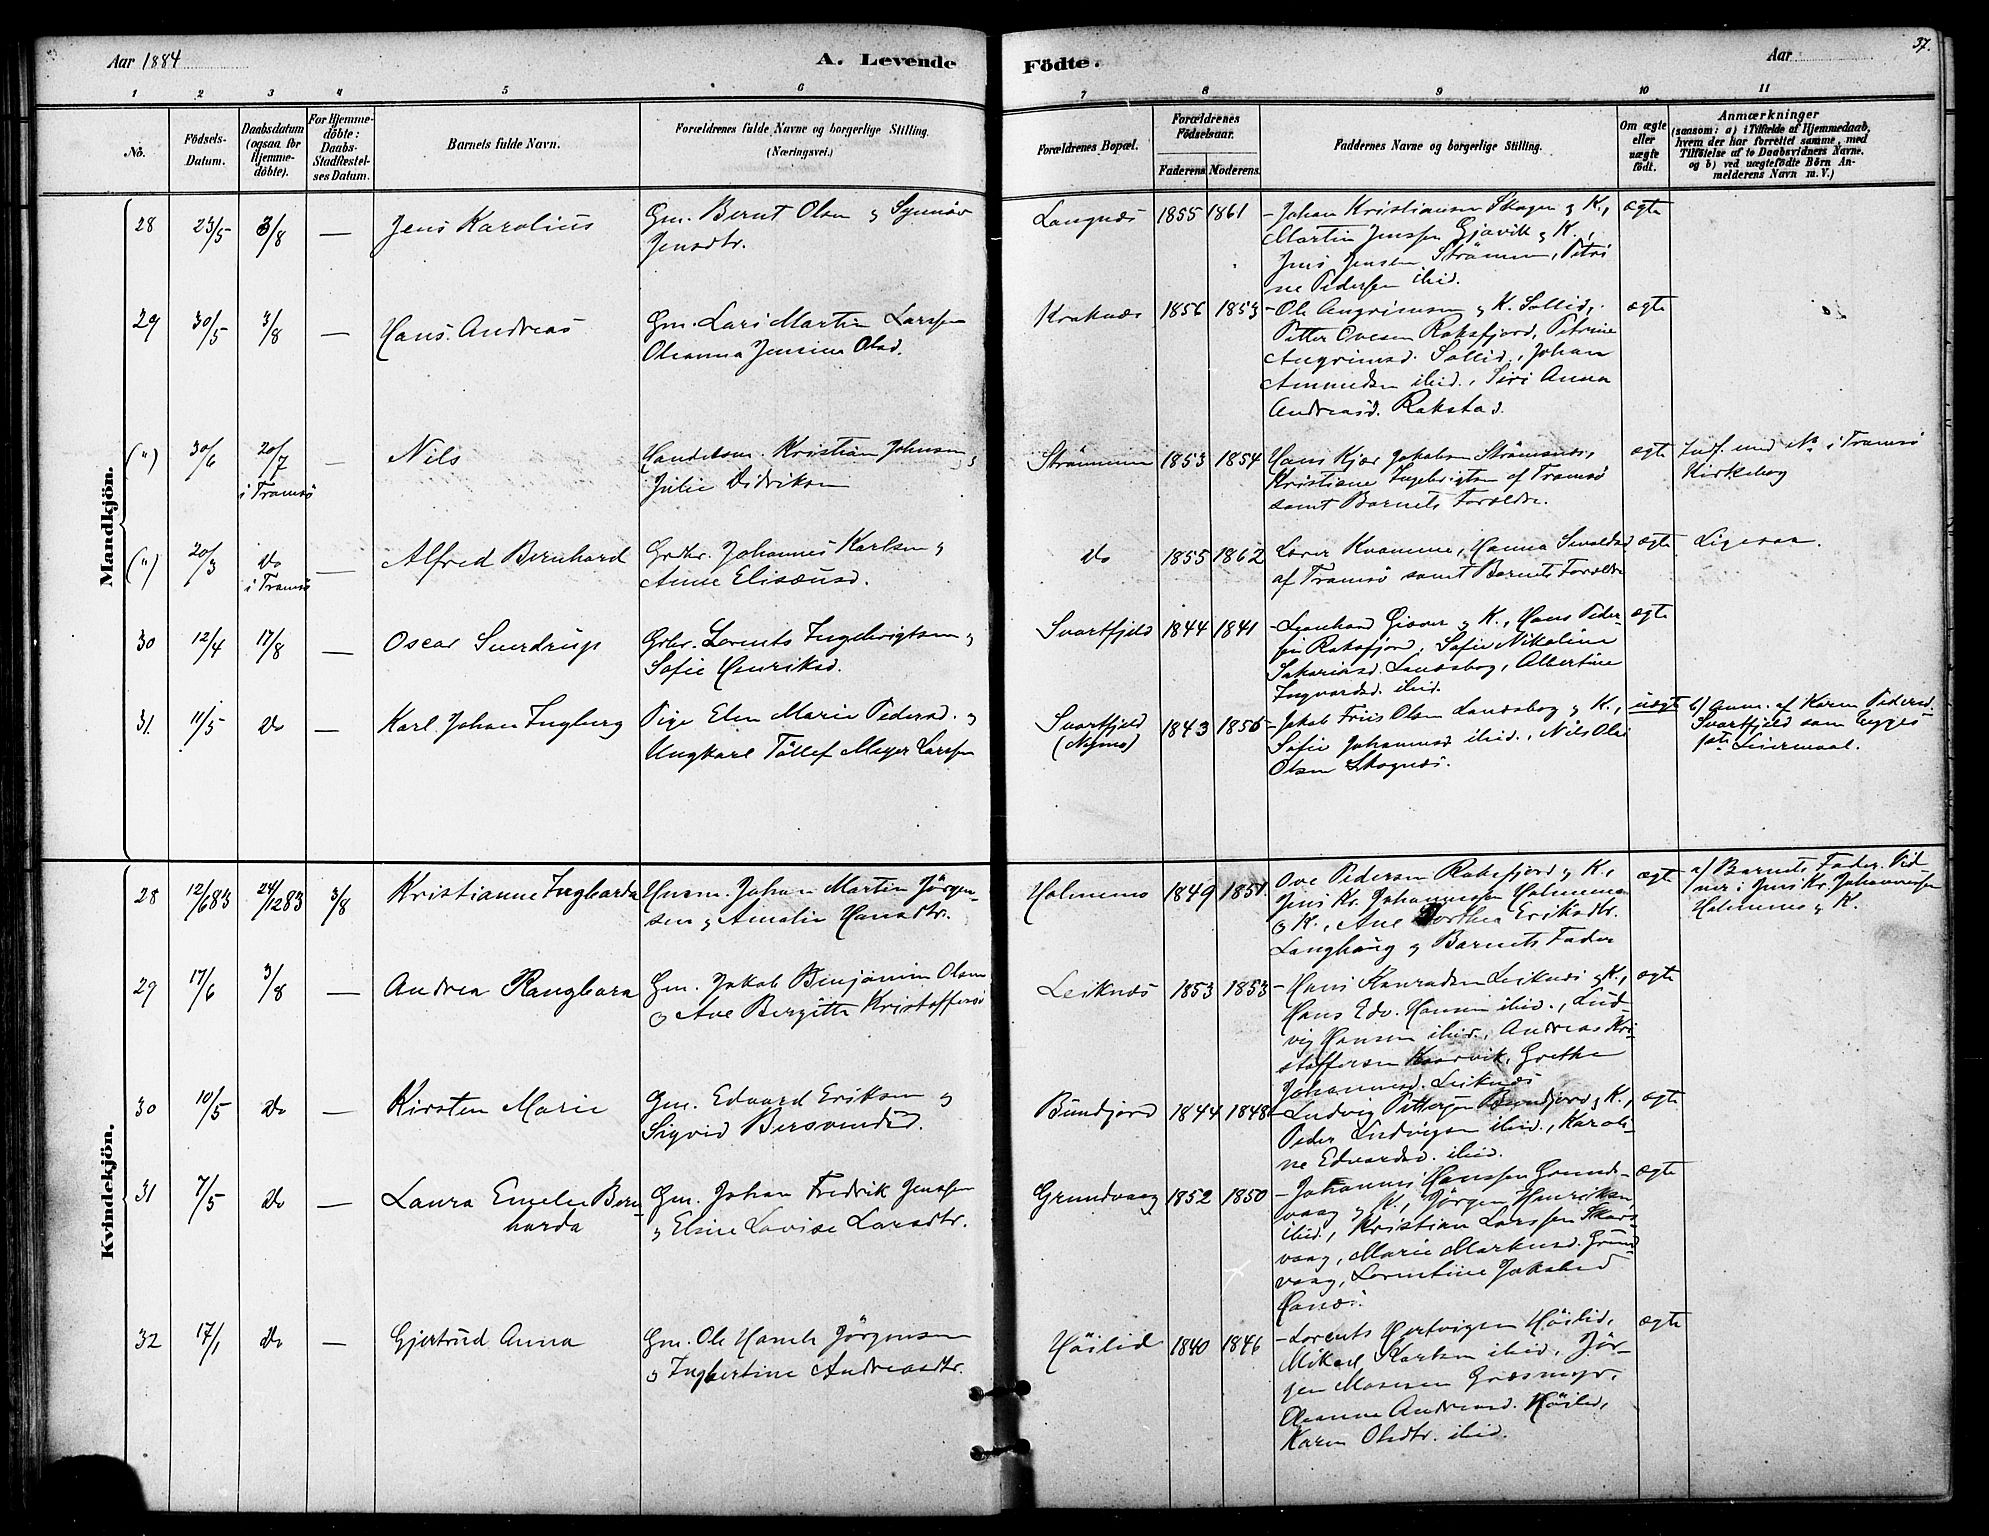 Aar 1884
A. Levende
Födte.
Aar
37.
1 2 3 4 5 6 7 8 9 10 11
No.
Födsels-
Datum.
Daabsdatum
(ogsaa for
Hjemme-
döbte).
For Hjemme-
döbte:
Daabs-
Stadfæstel-
ses Datum.
Barnets fulde Navn.
Forældrenes fulde Navne og borgerlige Stilling.
(Næringsvei.)
Forældrenes Bopæl.
Forældrenes
Födselsaar.
Faderens Moderens.
Faddernes Navne og borgerlige Stilling.
Om ægte
eller
uægte
födt.
Anmærkninger
(saasom: a) i Tilfælde af Hjemmedaab,
hvem der har forrettet samme, med
Tilföielse af to Daabsvidners Navne,
og b) ved uægtefödte Börn An-
melderens Navn m. V.)
Mandkjön.
28 23/5 3/8 — Jens Karolius
Gm. Bernt Olsen og Synnöv
Jensdtr.
Langnæs 1855 1861
Johan Kristiansen Skogen og K.,
Martin Jenssen Gjövik og K.,
Jens Jensen Strömmen, Petri
ne Pedersen ibid.
ægte
29 30/5 3/8 — Hans Andreas
Gm. Lars Martin Larssen
Oleanna Jensine Olsd.
Kraknæs 1856 1853
Ole Angrimsen og K. Sollid,
Petter Ovesen Raksfjord, Petrine
Angrimsd. Sollid, Johan
Amundsen ibid., Siri Anna
Andreasd. Rakstad.
ægte
(") 30/6 20/7 i Tromsö — Nils
Handelsm. Kristian Johnsen og
Julie Didriksen
Strömmen 1853 1854
Hans Kjær Jakobsen Strömsnes,
Kristiane Ingebrigtsen af Tromsö
samt Barnets Forældre.
ægte
Indf. med No i Tromsö
Kirkebog
(") 20/3 Do i Tromsö — Alfred Bernhard
Grdbr. Johannes Karlsen og
Anne Elisæusd.
Do 1855 1862
Lærer Kvamme, Hanna Sivaldsd
af Tromsö samt Barnets Forældre
ægte
Ligesaa.
30 12/4 17/8 — Oscar Sverdrup
Grbr. Lorents Ingebrigtsen og
Sofie Henriksd.
Svartfjeld 1844 1841
Leonhard Giæver og K., Hans Peder-
sen Raksfjord, Sofie Nikoline
Sakariasd. Landsbog, Albertine
Ingvardsd. ibid.
ægte
31. 11/5 Do — Karl Johan Ingberg
Pige Elen Marie Pedersd. og
Ungkarl Töllef Meyer Larssen
Svartfjeld
(Nymo) 1843 1856
Jakob Friis Olsen Landsbog og K.,
Sofie Johannesd ibid., Nils Olai
Olsen Skognæs.
uægte
b) Anm. af Karen Pedersd.
Svartfjeld som begges
Leiermaal.
Kvindekjön.
28 12/6 83 24/12 83 3/8 Kristianne Ingbarda
Husm. Johan Martin Jörgen-
sen og Amalie Hansdtr.
Holmemo 1849 1851
Ove Pedersen Raksfjord og K.,
Jens Kr. Johannessen Holmemo
og K., Ane Dorthea Eriksdtr.
Langhaug og Barnets Fader
ægte
a) Barnets Fader. Vid-
ner: Jens Kr. Johannessen
Holmemo og K.
29 17/6 3/8 — Andrea Rangbara
Gm. Jakob Benjamin Olsen
og Ane Bergitte Kristoffersd
Leiknes 1853 1853
Hans Konradsen Leiknes og K.,
Hans Edv. Hansen ibid., Lud-
vig Hansen ibid., Andreas Kri-
stoffersen Kaarvik, Grethe
Johannesd. Leiknes
ægte
30 10/5 Do — Kirsten Marie
Gm. Edvard Eriksen og
Sigvid Bersvendsd.
Bundjord 1844 1848
Ludvig Pettersen Bundjord og K.,
Peder Ludvigsen ibid., Karoli-
ne Edvardsd. ibid.
ægte
31 7/5 Do — Laura Emelie Bern
harda
Gm. Johan Fredrik Jenssen
og Elene Lovise Larsdtr.
Grundvaag 1852 1850
Johannes Hanssen Grund-
vaag og K., Jörgen Henriksen
ibid., Kristian Larssen Skars-
vaag, Marie Markusd. Grund
vaag, Lorentine Jakobsd
Hanæs.
ægte
32 17/1 Do — Gjertrud Anna
Gm. Ole Hanch Jörgensen
og Ingbertine Andreasdtr.
Höilid 1840 1846
Lorents Hertvigsen Höilid,
Mikael Karlsen ibid., Jör-
gen Mosesen Græsmyr,
Oleanna Andreasd. Höilid,
Karen Olsdtr. ibid.
ægte